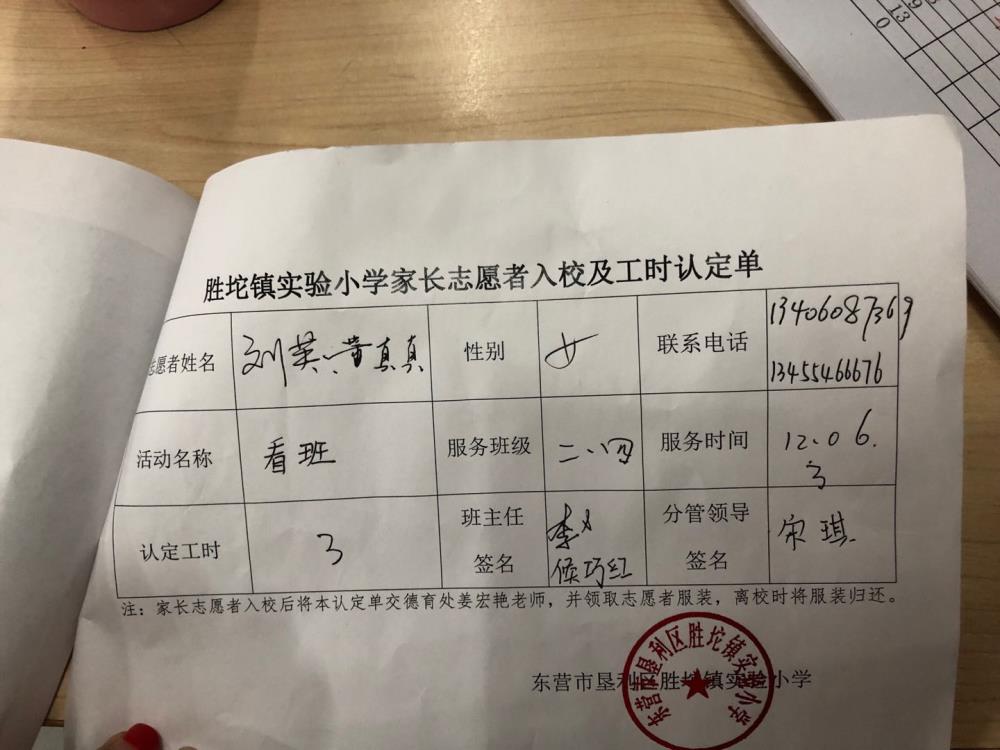 胜坨镇实验小学家长志愿者入校及工时认定单
愿者姓名 刘英、黄真真 性别 女 联系电话 13406087369
13455466676
活动名称 看班 服务班级 二、四 服务时间 12.06.
3
认定工时 3 班主任签名 侯巧红 分管领导签名 宋琪
注：家长志愿者入校后将本认定单交德育处姜宏艳老师，并领取志愿者服装，离校时将服装归还。
东营市垦利区胜坨镇实验小学
东营市垦利区胜坨镇实验小学
13
0